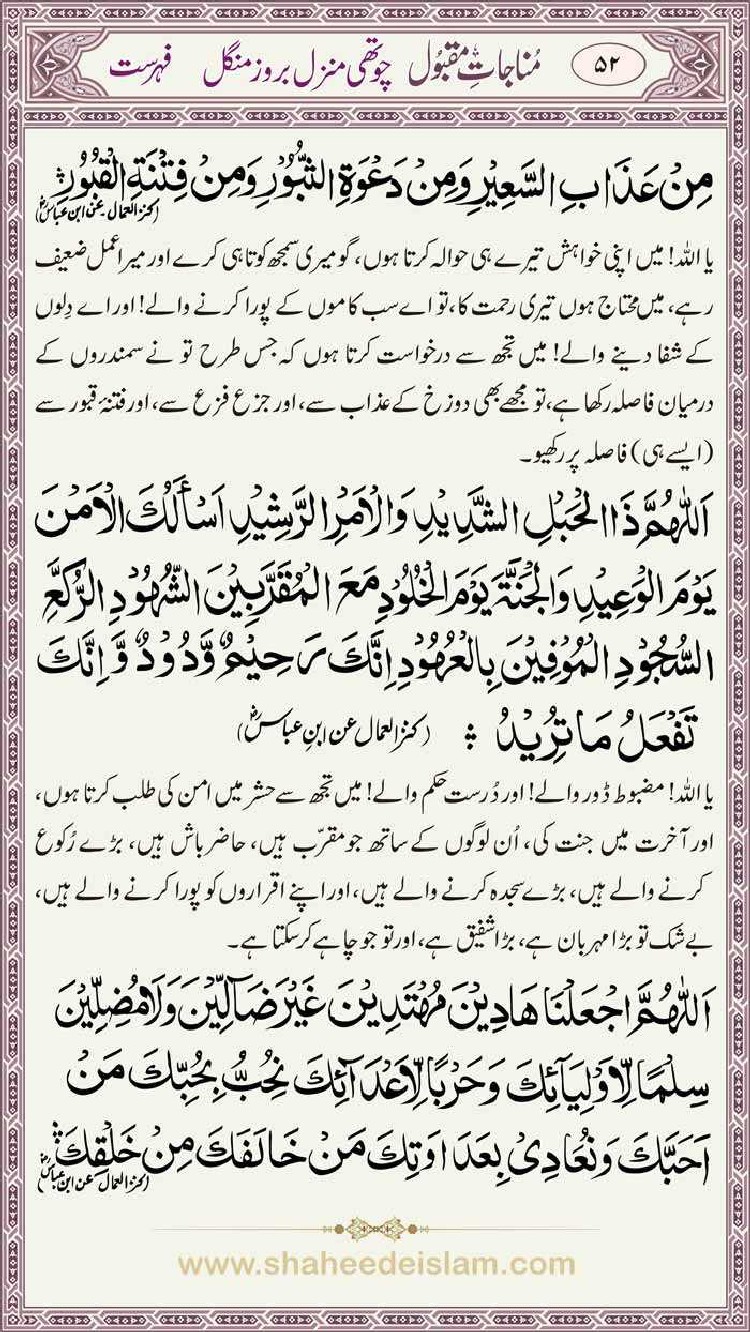 ۵۲ مُناجاتِ مقبُول چوتھی منزل بروز منگل فہرست
مِنْ عَذَابِ السَّعِيْرِ وَمِنْ دَعْوَةِ الثُّبُوْرِ وَمِنْ فِتْنَةِ الْقُبُوْرِ
(کنز العمال۔ عن ابن عباسؓ)
یا اللہ! میں اپنی خواہش تیرے ہی حوالہ کرتا ہوں، گو میری سمجھ کوتاہی کرے اور میرا عمل ضعیف
رہے، میں محتاج ہوں تیری رحمت کا، تو اے سب کاموں کے پورا کرنے والے! اور اے دِلوں
کے شفا دینے والے! میں تجھ سے درخواست کرتا ہوں کہ جس طرح تو نے سمندروں کے
درمیان فاصلہ رکھا ہے، تو مجھے بھی دوزخ کے عذاب سے، اور جزع فزع سے، اور فتنۂ قبور سے
(ایسے ہی) فاصلہ پر رکھیو۔
اَللّٰهُمَّ ذَا الْحَبْلِ الشَّدِيْدِ وَالْاَمْرِ الرَّشِيْدِ اَسْأَلُكَ الْاَمْنَ
يَوْمَ الْوَعِيْدِ وَالْجَنَّةَ يَوْمَ الْخُلُوْدِ مَعَ الْمُقَرَّبِيْنَ الشُّهُوْدِ الرُّكَّعِ
السُّجُوْدِ الْمُوْفِيْنَ بِالْعُهُوْدِ اِنَّكَ رَحِيْمٌ وَّدُوْدٌ وَّاِنَّكَ
تَفْعَلُ مَا تُرِيْدُ (کنز العمال عن ابنِ عباسؓ)
یا اللہ! مضبوط ڈور والے! اور دُرست حکم والے! میں تجھ سے حشر میں امن کی طلب کرتا ہوں،
اور آخرت میں جنت کی، اُن لوگوں کے ساتھ جو مقرّب ہیں، حاضر باش ہیں، بڑے رُکوع
کرنے والے ہیں، بڑے سجدہ کرنے والے ہیں، اور اپنے اقراروں کو پورا کرنے والے ہیں،
بے شک تو بڑا مہربان ہے، بڑا شفیق ہے، اور تو جو چاہے کر سکتا ہے۔
اَللّٰهُمَّ اجْعَلْنَا هَادِيْنَ مُهْتَدِيْنَ غَيْرَ ضَآلِّيْنَ وَلَا مُضِلِّيْنَ
سِلْمًا لِّاَوْلِيَآئِكَ وَحَرْبًا لِّاَعْدَآئِكَ نُحِبُّ بِحُبِّكَ مَنْ
اَحَبَّكَ وَنُعَادِیْ بِعَدَاوَتِكَ مَنْ خَالَفَكَ مِنْ خَلْقِكَ
(کنز العمال عن ابن عباسؓ)
www.shaheedeislam.com